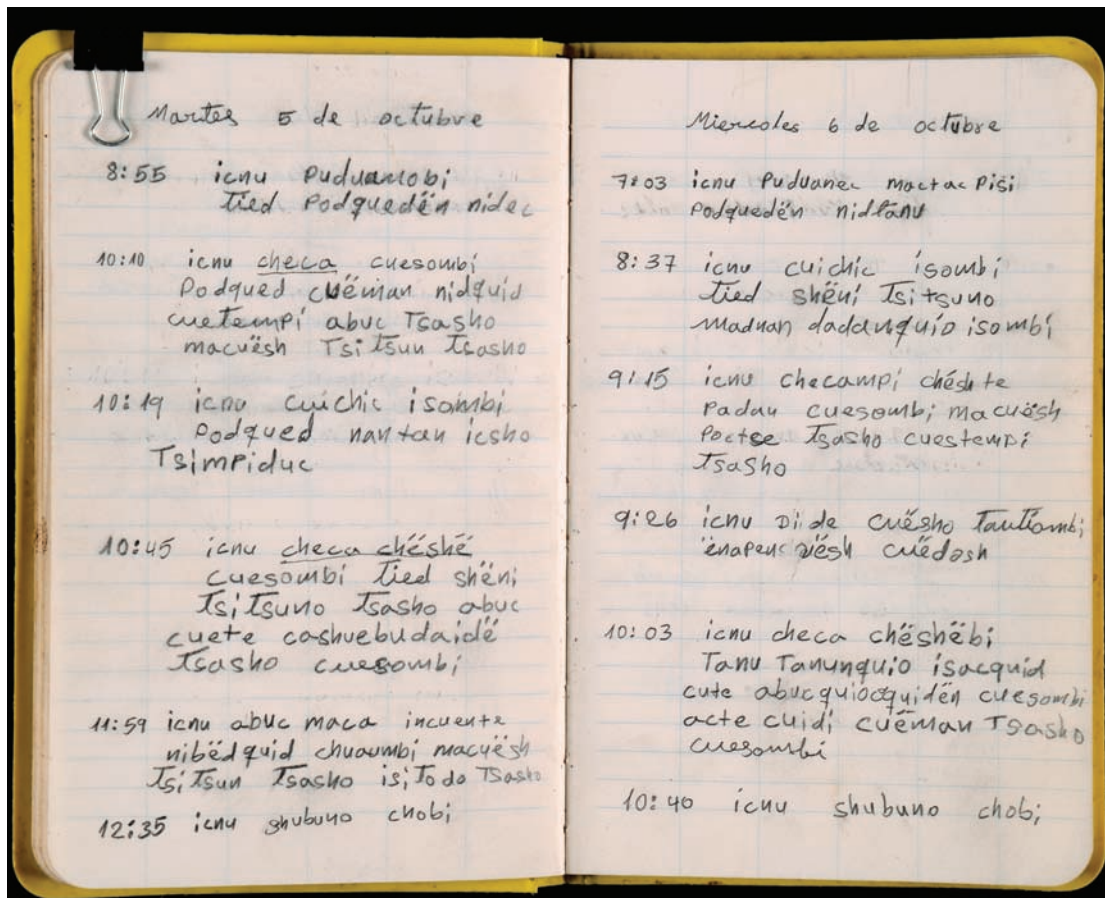 Martes 5 de octubre
8:55 icnu Puduanobi
Tied Podquedën nidec
10:10 icnu checa cuesombi
Podqued cuëman nidquid
cuetempi abuc Tsasho
macuësh Tsitsun Tsasho
10:19 icnu cuichic isombi
Podqued nantan icsho
Tsimpiduc
10:45 icnu checa chëshë
cuesombi Tied shëni
Tsitsuno Tsasho abuc
cuete cashuebudaidë
Tsasho cuesombi
11:59 icnu abuc maca incuente
nibëdquid chuaumbi macuësh
Tsitsun Tsasho isitodo Tsasho
12:35 icnu shubuno chobi
Miercoles 6 de octubre
7:03 icnu Puduanec mactac Pisi
Podquedën nidtanu
8:37 icnu cuichic isombi
Tied shëni Tsitsuno
maduan dadanquio isombi
9:15 icnu checampi chështe
Padan cuesombi macuësh
Poctse Tsasho cuestempi
Tsasho
9:26 icnu Dide cuësho Tantiambi
ënapen vësh cuëdash
10:03 icnu checa chëshëbi
Tanu Tanunquio isacquid
cute abucquiocquidën cuesombi
acte cuidi cuëman Tsasho
cuesombi
10:40 icnu shubuno chobi